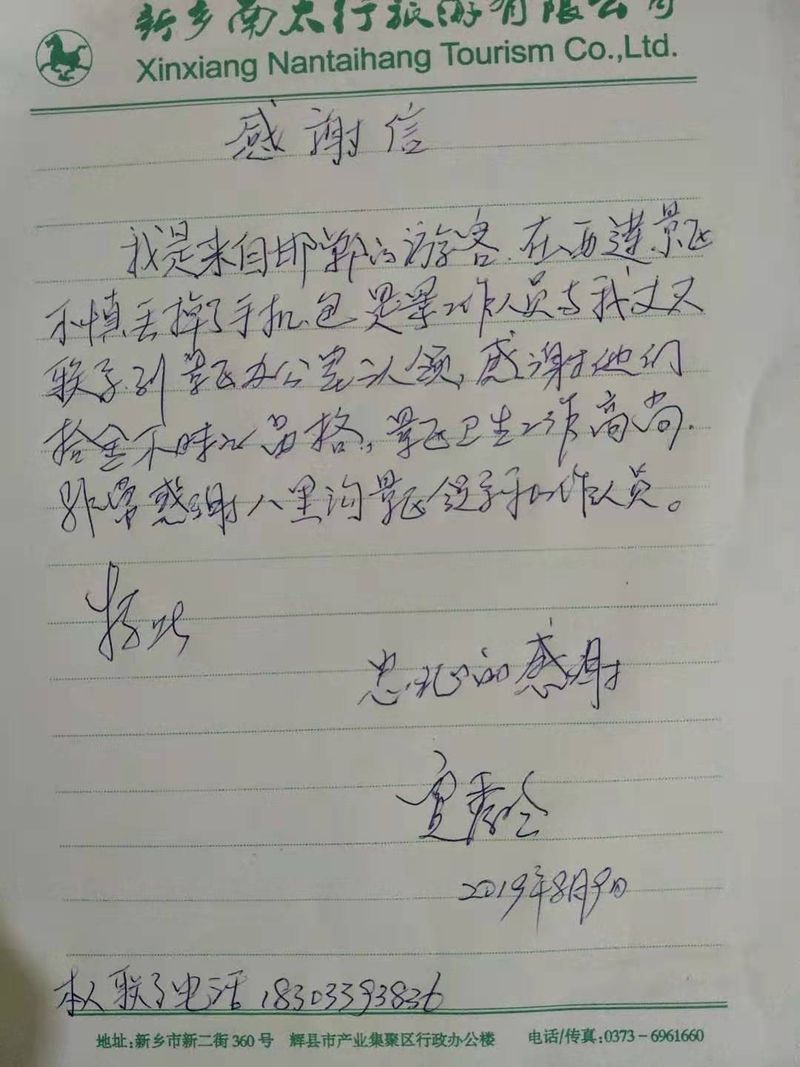 新乡南太行旅游有限公司
Xinxiang Nantaihang Tourism Co.,Ltd.
感谢信
我是来自邯郸的游客.在西莲景区
不慎丢掉了手机包是景工作人员与我丈夫
联系到景区办公室认领,感谢他们
拾金不昧的品格,景区卫生工作高尚.
非常感谢八里沟景区领导和工作人员。
特此
忠心的感谢
2019年8月9日
本人联系电话 18303393836
地址:新乡市新二街360号 辉县市产业集聚区行政办公楼 电话/传真:0373-6961660